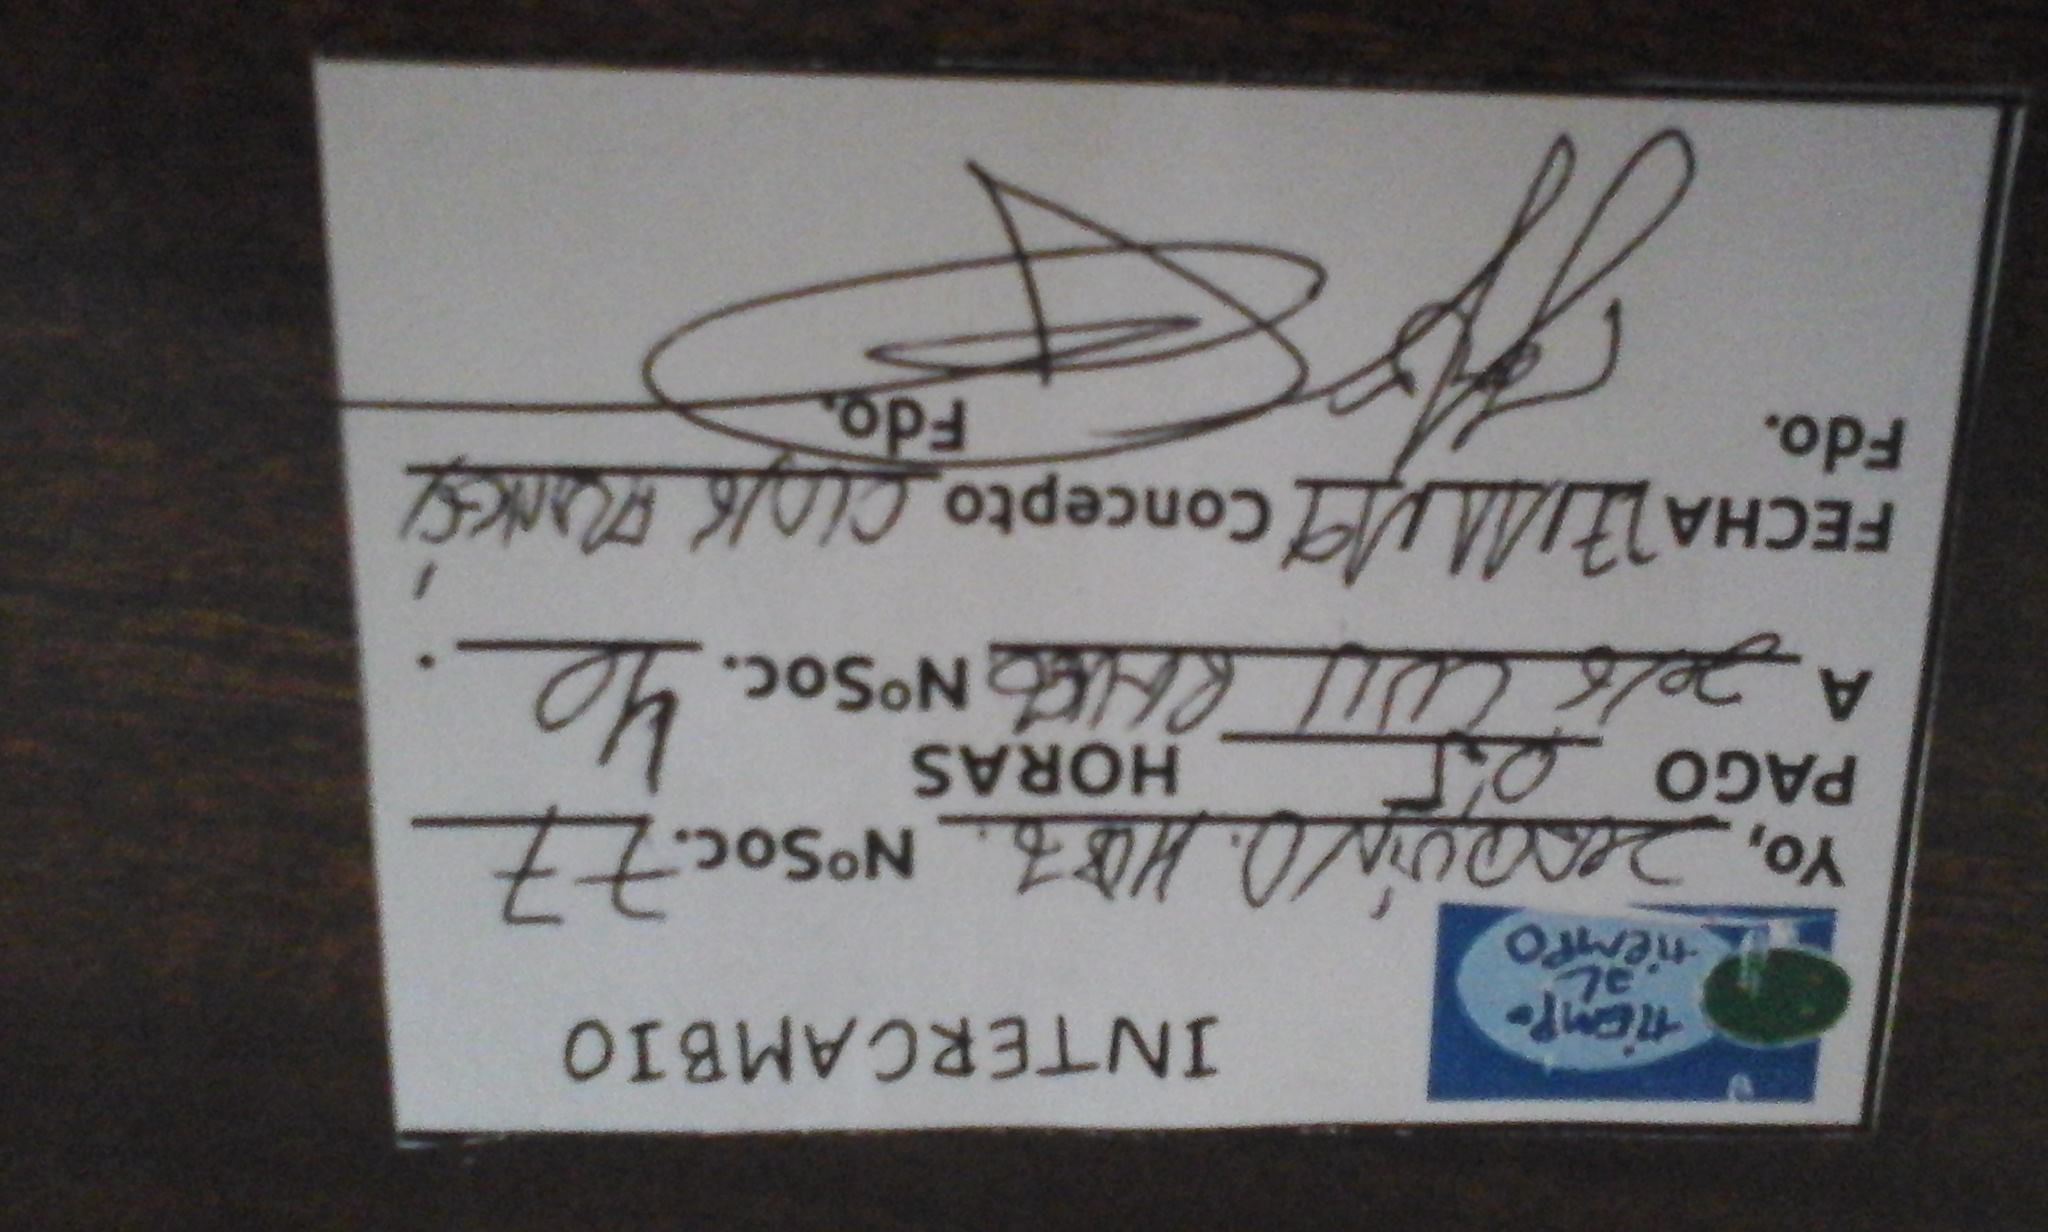 tiEMPo
aL
tiEMPO
INTERCAMBIO
Yo, JOAQUÍN O. NºSoc. 77
PAGO 0'5 HORAS
A LUIS NºSoc. 40.
FECHA 27/11/19 Concepto FRANCÉS
Fdo. Fdo.